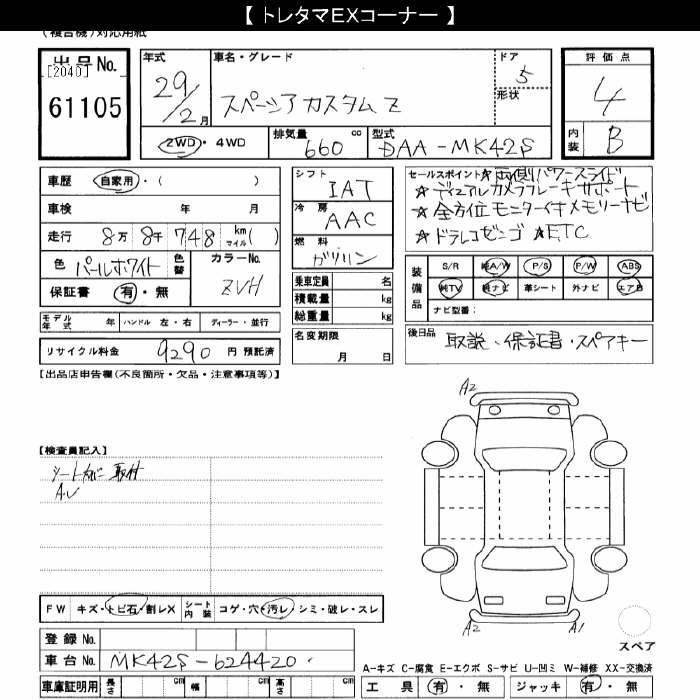 【 トレタマEXコーナー 】
(複合機)対応用紙
出品No.
[204D]
61105
年式
29/2月
車名・グレード
スペーシア カスタム Z
ドア
5
形状
2WD・4WD
排気量
660 cc
型式
DAA-MK42S
評価点
4
内装
B
車歴 自家用・( )
車検 年 月
走行 8万 8千 748 km マイル ( )
色 パールホワイト 色替
カラーNo.
ZVH
保証書 有・無
モデル年式 年 ハンドル 左・右 ディーラー・並行
リサイクル料金 9290 円 預託済
シフト
IAT
冷房
AAC
燃料
ガソリン
乗車定員 名
積載量 kg
総重量 kg
名変期限
月 日
セールスポイント ☆両側パワースライド
☆デュアルカメラブレーキサポート
☆全方位モニター付メモリーナビ
☆ドラレコゼンゴ ☆ETC
装備品
S/R 純A/W P/S P/W ABS
純TV 純ナビ 革シート 外ナビ エアB
ナビ型番:
後日品
取説、保証書・スペアキー
【出品店申告欄(不良箇所・欠品・注意事項等)】
【検査員記入】
シートカバー取付
AV
A2
A2
A1
スペア
FW キズ・トビ石・割レX シート内装 コゲ・穴・汚レ・シミ・破レ・スレ
登録No.
車台No. MK42S-624420
A-キズ C-腐食 E-エクボ S-サビ U-凹ミ W-補修 XX-交換済
車庫証明用 長さ cm 幅 cm 高さ cm
工具 有・無 ジャッキ 有・無